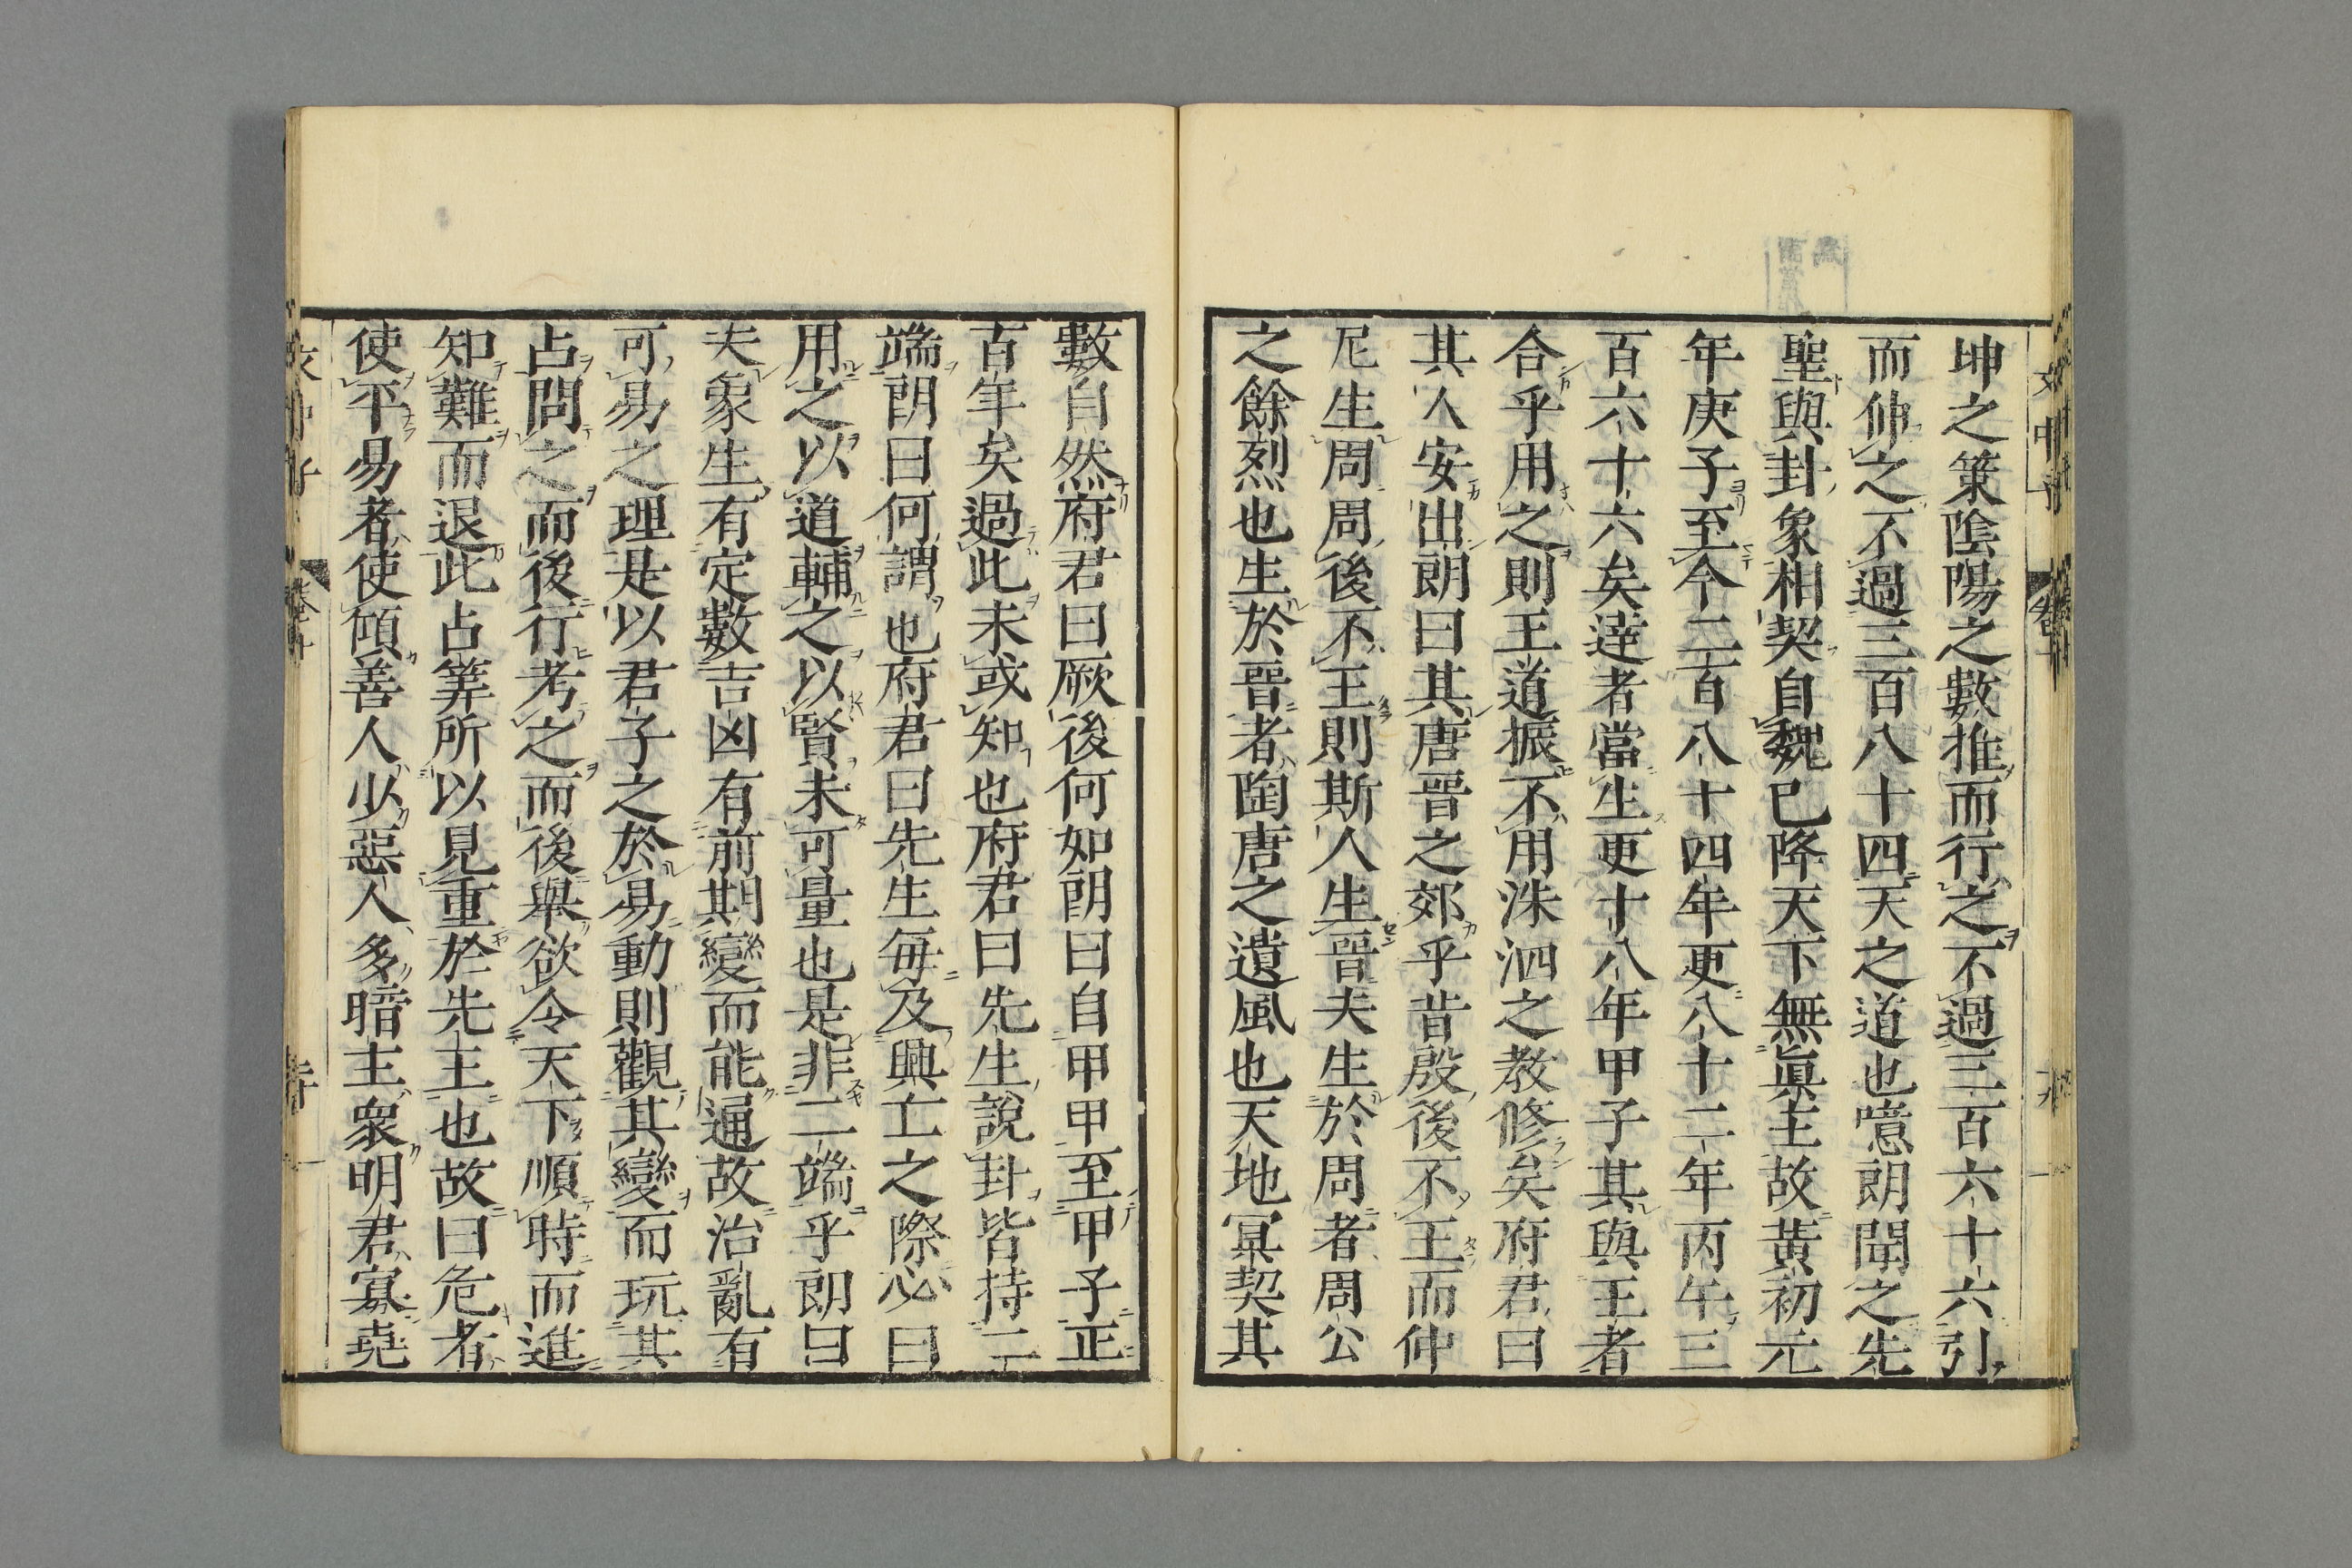 坤之策陰陽之數推而行之不過三百六十六引
而伸之不過三百八十四天之道也噫朗聞之先
聖與卦象相契自魏已降天下無眞主故黃初元
年庚子至今二百八十四年更八十二年丙午三
百六十六矣達者當生更十八年甲子其與王者
合乎用之則王道振不用洙泗之教修矣府君曰
其人安出朗曰其唐晉之郊乎昔殷後不王而仲
尼生周周後不王則斯人生晉夫生於周者周公
之餘烈也生於晉者陶唐之遺風也天地冥契其
數自然府君曰厥後何如朗曰自甲申至甲子正
百年矣過此未或知也府君曰先生說卦皆持二
端朗曰何謂也府君曰先生每及興亡之際必曰
用之以道輔之以賢未可量也是非二端乎朗曰
夫象生有定數吉凶有前期變而能通故治亂有
可易之理是以君子之於易動則觀其變而玩其
占問之而後行考之而後舉欲令天下順時而進
知難而退此占筭所以見重於先王也故曰危者
使平易者使傾善人少惡人多暗主衆明君寡堯
文中子